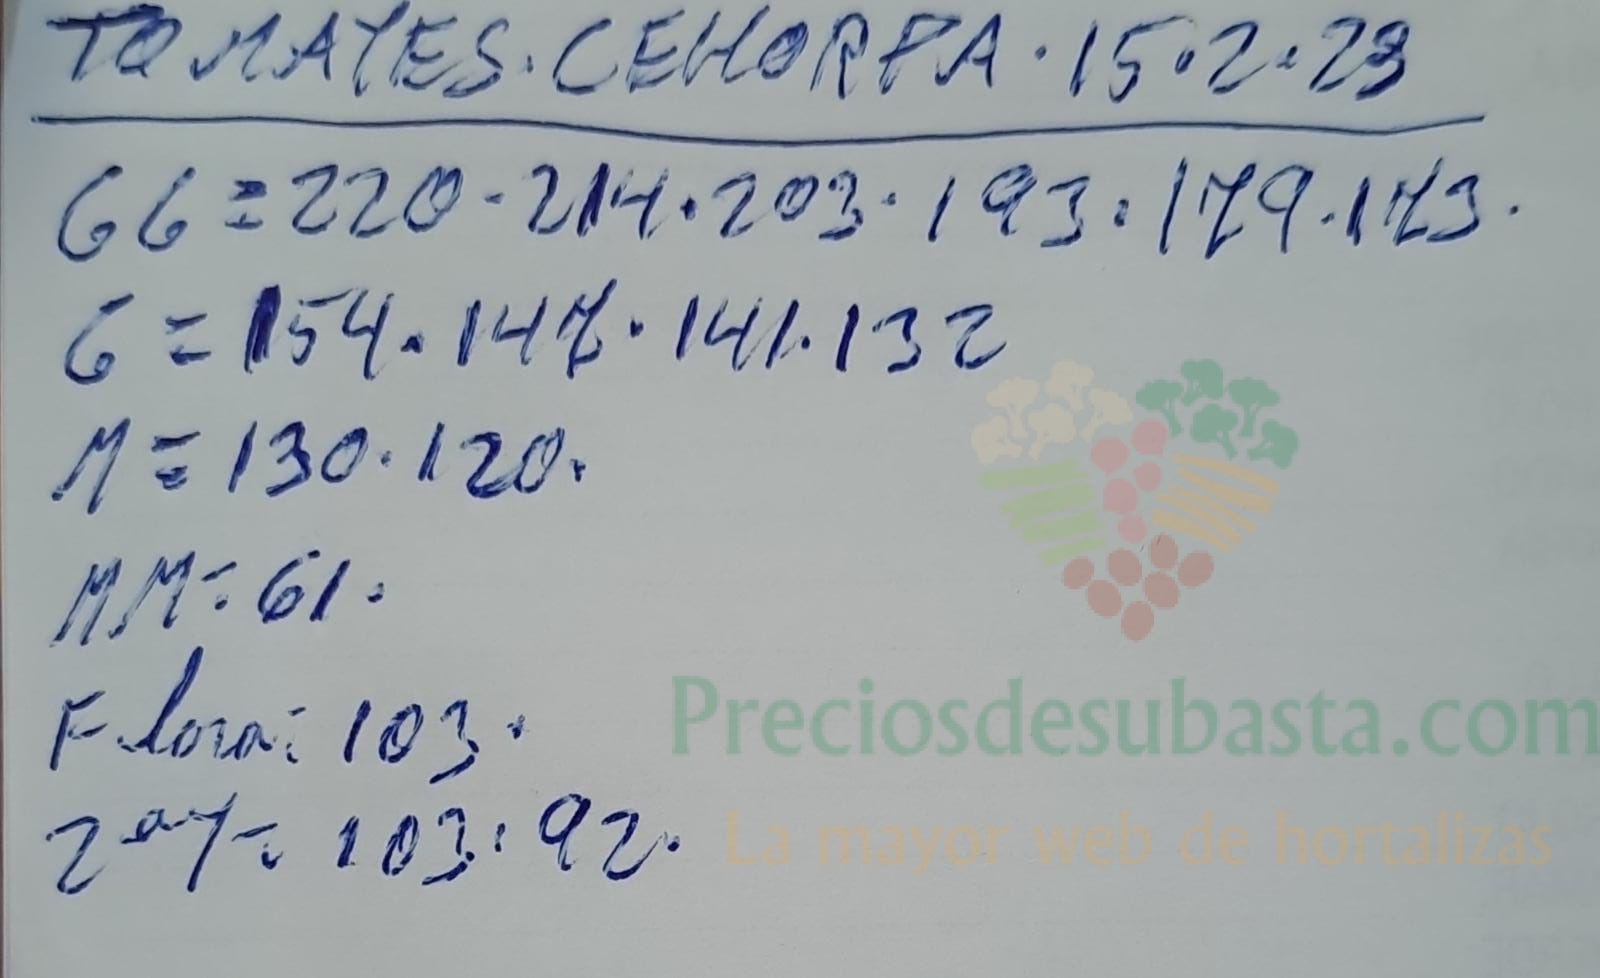 TOMATES. CEHORPA. 15.2.23
GG = 220 - 214. 203. 193. 179. 173.
G = 154. 147. 141. 132
M = 130. 120.
MM = 61.
Flora = 103.
2ª = 103. 92.
Preciosdesubasta.com
La mayor web de hortalizas